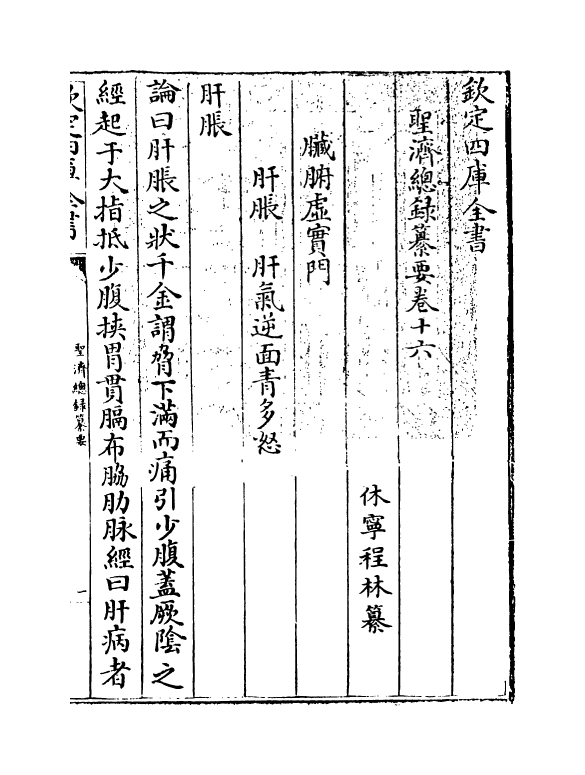 欽定四庫全書
聖濟總録纂要卷十六
休寧程林纂
臟腑虚實門
肝脹 肝氣逆面青多怒
肝脹
論曰肝脹之狀千金謂脅下滿而痛引少腹蓋厥陰之
經起于大指抵少腹挾胃貫膈布脇肋脉經曰肝病者
欽定四庫全書
聖濟總録纂要
一